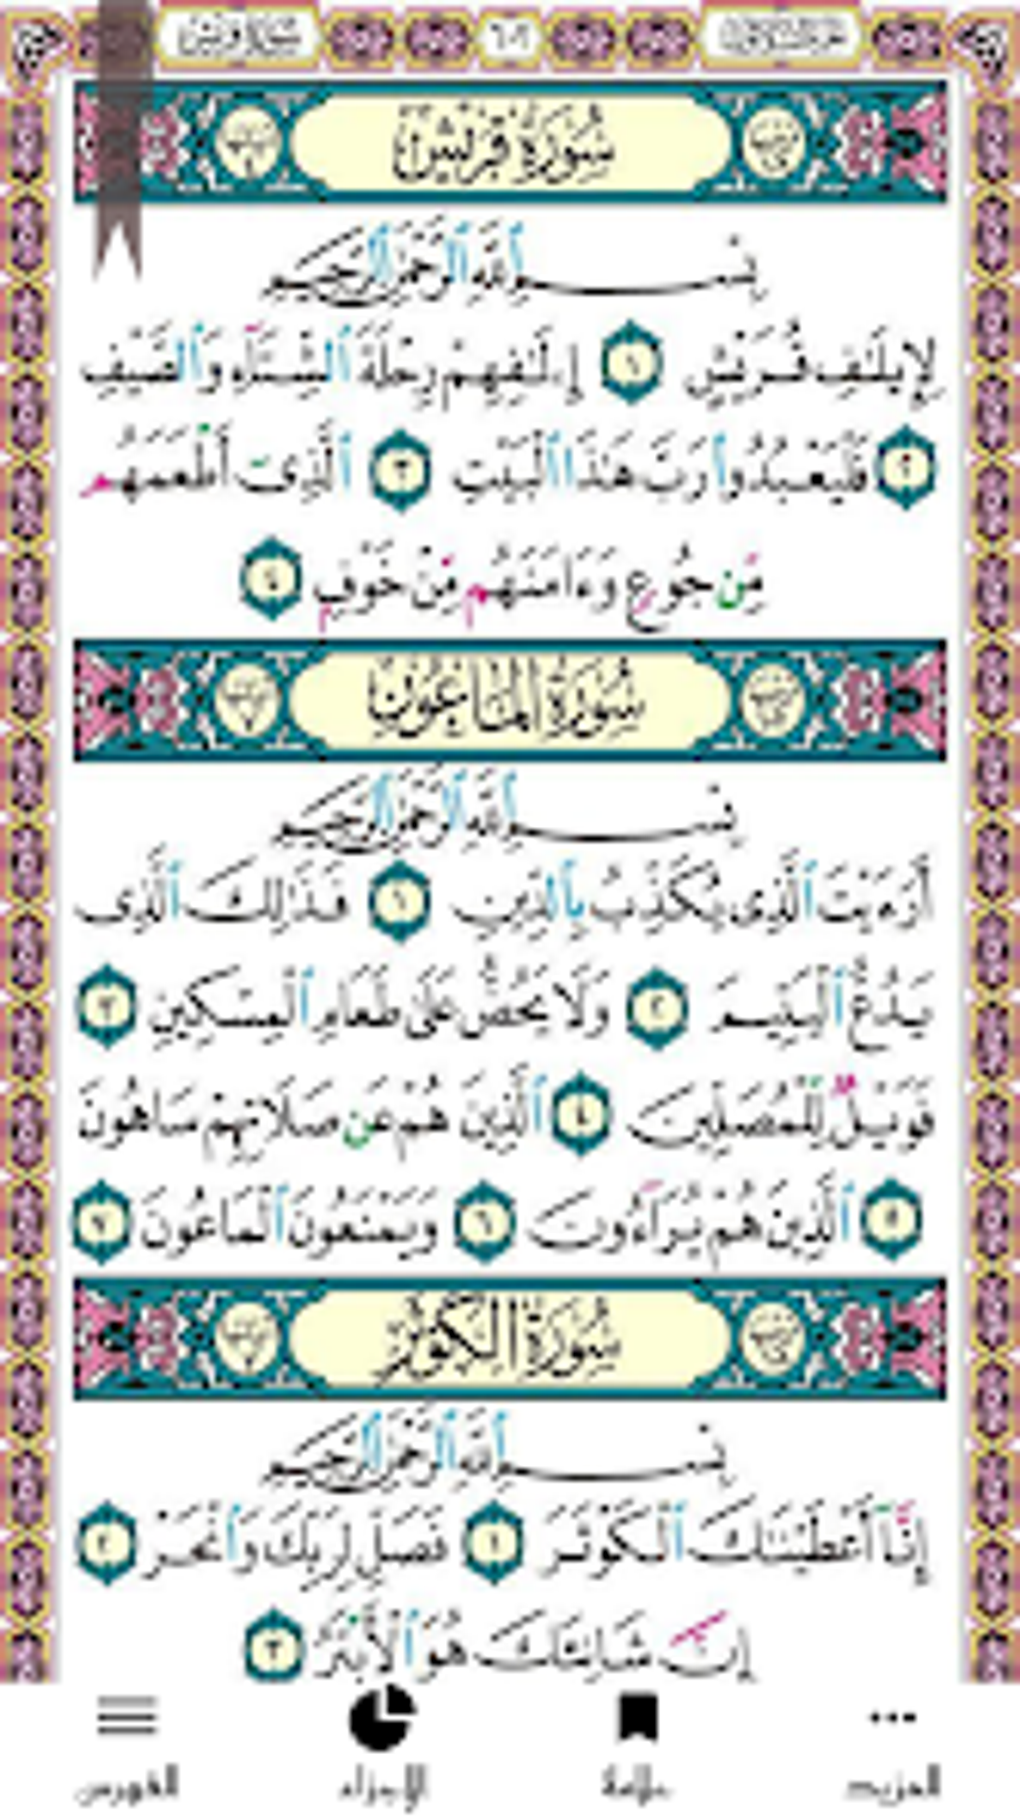 سورة قريش
٦٠٢
سُورَةُ قُرَيْشٍ
بِسْمِ ٱللَّهِ ٱلرَّحْمَٰنِ ٱلرَّحِيمِ
لِإِيلَٰفِ قُرَيْشٍ ١ إِۦلَٰفِهِمْ رِحْلَةَ ٱلشِّتَآءِ وَٱلصَّيْفِ
٢ فَلْيَعْبُدُوا۟ رَبَّ هَٰذَا ٱلْبَيْتِ ٣ ٱلَّذِىٓ أَطْعَمَهُم
مِّن جُوعٍ وَءَامَنَهُم مِّنْ خَوْفٍۭ ٤
سُورَةُ المَاعُونِ
بِسْمِ ٱللَّهِ ٱلرَّحْمَٰنِ ٱلرَّحِيمِ
أَرَءَيْتَ ٱلَّذِى يُكَذِّبُ بِٱلدِّينِ ١ فَذَٰلِكَ ٱلَّذِى
يَدُعُّ ٱلْيَتِيمَ ٢ وَلَا يَحُضُّ عَلَىٰ طَعَامِ ٱلْمِسْكِينِ ٣
فَوَيْلٌ لِّلْمُصَلِّينَ ٤ ٱلَّذِينَ هُمْ عَن صَلَاتِهِمْ سَاهُونَ
٥ ٱلَّذِينَ هُمْ يُرَآءُونَ ٦ وَيَمْنَعُونَ ٱلْمَاعُونَ ٧
سُورَةُ الكَوْثَرِ
بِسْمِ ٱللَّهِ ٱلرَّحْمَٰنِ ٱلرَّحِيمِ
إِنَّآ أَعْطَيْنَٰكَ ٱلْكَوْثَرَ ١ فَصَلِّ لِرَبِّكَ وَٱنْحَرْ ٢
إِنَّ شَانِئَكَ هُوَ ٱلْأَبْتَرُ ٣
المزيد
علامة
الاجزاء
الفهرس